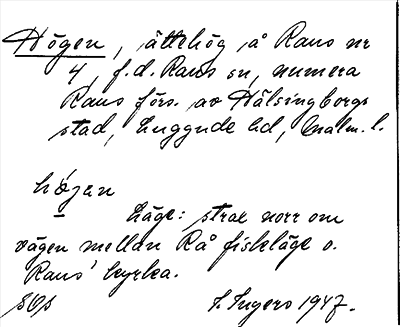 Högen, ättehög å Raus nr
4, f.d. Raus sn, numera
Raus förs. av Hälsingborgs
stad, Luggude hd, Malm. l.
högen
Läge: strax norr om
vägen mellan Rå fiskläge o.
Raus' kyrka.
S. Ingers 1947.